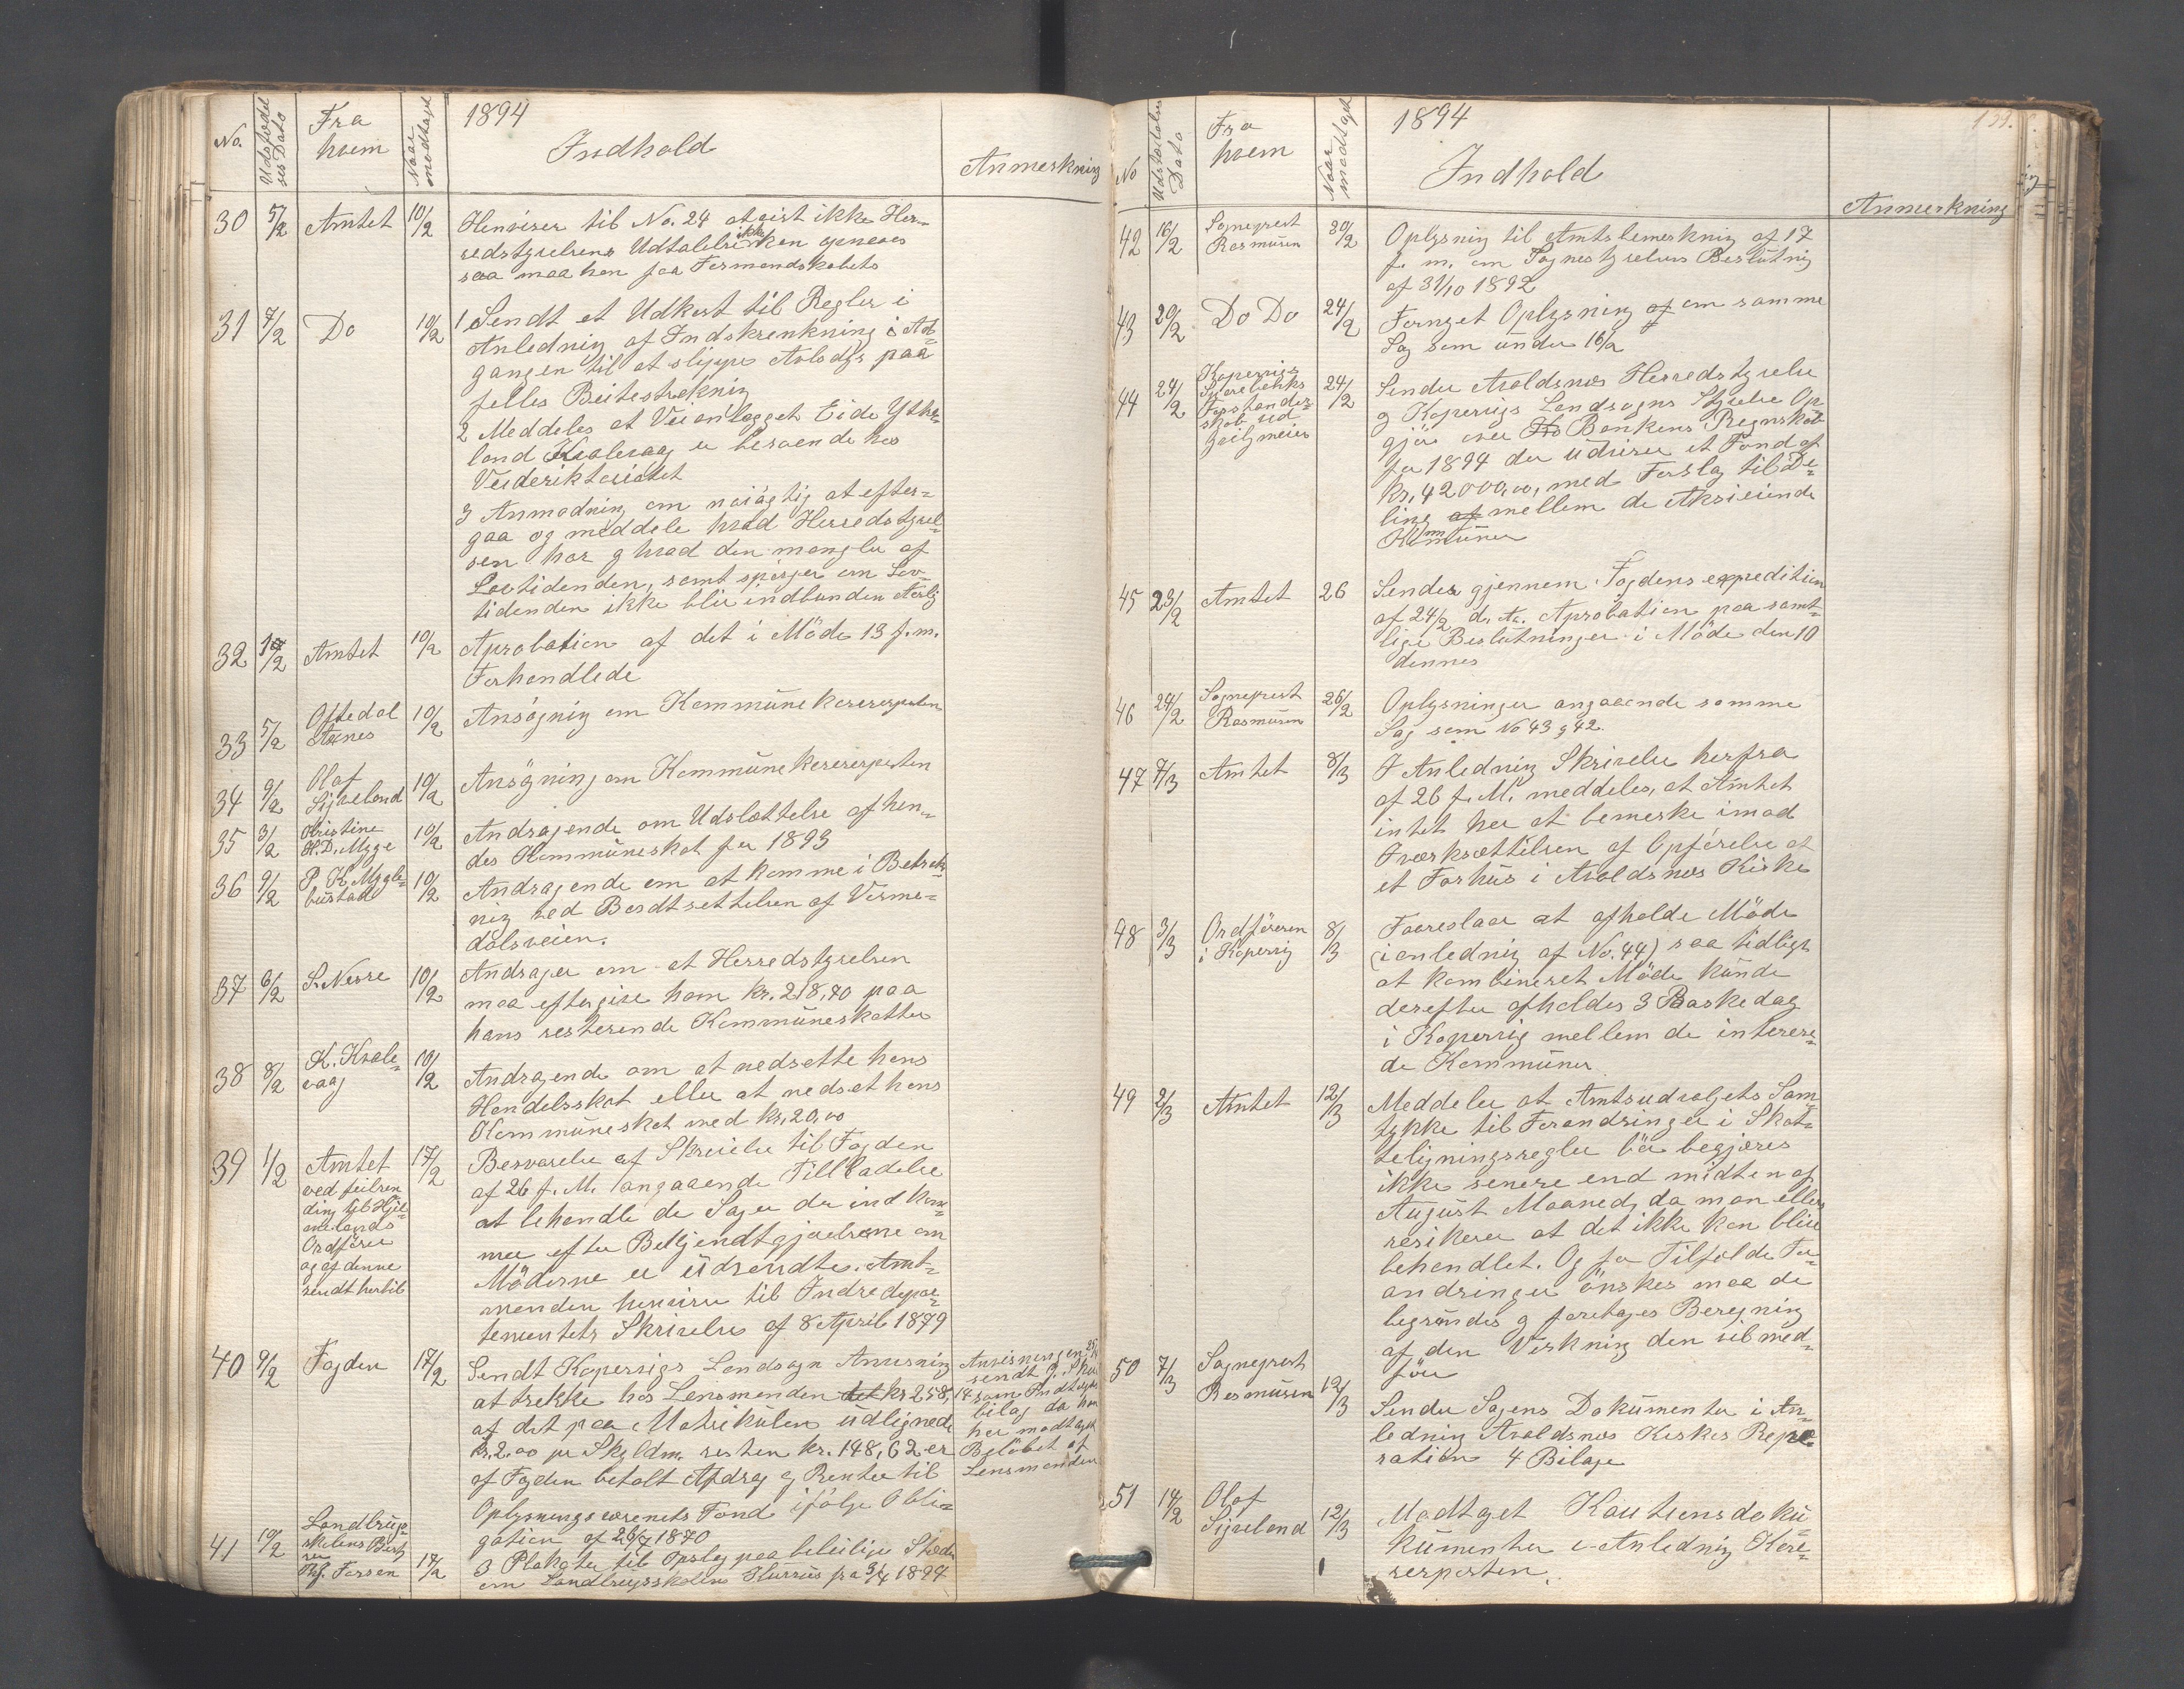 1894
No.
Udstædel
ses Dato
Fra
hvem
Naar
modtaget
Indhold
Anmerkning
30 5/2 Amtet 10/2 Henviser til No. 24 at sist ikke Her-
redstyrelsens Udtalelse ikke kan opnaaes
saa maa han faa Formandskabets
31 7/2 Do 10/2 1 Sendt et Udkast til Regler i
Anledning af Indskrenkning i Ad-
gangen til at slippe Avlsdyr paa
felles Beitestrekning
2 Meddeles at Veianlegget Eide Ytre-
land Kvalevaag er beroende hos
Veideriktoriatet
3 Anmodning om nøiagtig at efter-
gaa og meddele hvad Herredstyrel-
sen har og hvad den mangler af
Lovtidenden, samt spørger om Lov-
tidenden ikke blir indbunden Aarlig
32 10/2 Amtet 10/2 Aprobation af det i Møde 13 f.m.
Forhandlede
33 5/2 Oftedal
Aanes 10/2 Ansøgning om Kommunekasererposten
34 9/2 Olaf
Sijveland 10/2 Ansøgning om Kommunekasererposten
35 3/2 Kristine
H.D. Myge 10/2 Andragende om Udslættelse af hen-
des Kommuneskat for 1893
36 9/2 P. K. Mygle-
bustad 10/2 Andragende om at komme i Betrakt-
ning ved Bordtsettelsen af Visne-
dalsveien.
37 6/2 S. Nesse 10/2 Andrager om at Herredstyrelsen
maa eftergive ham kr. 218,70 paa
hans resterende Kommuneskatter
38 8/2 K. Kvale-
vaag 10/2 Andragende om at nedsette hans
Handelsskat eller at nedsat hans
Kommuneskat med kr. 20,00
39 1/2 Amtet
ved feilsen
ding til Hjel-
melands
Ordfører
og af denne
sendt hertil
17/2 Besvarelse af Skrivelse til Fogden
af 26 f. M. angaaende Tilladelse
at behandle de Sager der ind kom-
mer efter Bekjendtgjørelserne om
Møderne er udsendte. Amt-
manden henviser til Indredepar-
tementets Skrivelse af 8 April 1879
40 9/2 Fogden 17/2 Sendt Kopervigs Landsogn Anvisning
at trekke hos Lensmanden kr 258,14
af det paa Matrikulen udlignede
kr. 2.00 pr Skyldm. resten kr. 148,62 er
af Fogden betalt Afdrag og Renter til
Oplysningsvæsenets Fond ifølge Obli-
gation af 26/7 1870
Anvisningen
sendt
som Indtægts
bilag da han
har modtaget
Beløbet af
Lensmanden
41 10/2 Landbrugs-
skolens Besty
rer
Th. Forsen 17/2 3 Plakater til Opslag paa beleilige Steder
om Landbrugsskolens Kursus fra 3/4 1894
1894
No
Udstædelses
Dato
Fra
hvem
Naar
modtaget
Indhold
Anmerkning
42 16/2 Sogneprest
Rasmusen 20/2 Oplysning til Amtsbemerkning af 17
f. m. om Sognestyrelsens Beslutning
af 31/10 1892
43 20/2 Do Do 24/2 Fornyet Oplysning af om samme
Sag som under 16/2
44 24/2 Kopervigs
Sparebanks
Forstander-
skab ved
Geitzmeier 24/2 Sender Avaldsnes Herredstyrelse
og Kopervigs Landsogns Styrelse Op-
gjør over Bankens Regnskab
for 1894 der udviser et Fond af
kr. 42000,00, med Forslag til De-
ling af mellem de Aksieiende
Kommuner
45 23/2 Amtet 26 Sender gjennem Fogdens expedition
af 24/2 d. A. Aprobation paa samt-
lige Beslutninger i Møde den 10
dennes
46 24/2 Sogneprest
Rasmusen 26/2 Oplysninger angaaende samme
Sag som No 43 og 42.
47 7/3 Amtet 8/3 I Anledning Skrivelse herfra
af 26 f. M. meddeles, at Amtet
intet har at bemerke imod
Iverksættelsen af Opførelse at
et Forhus i Avaldsnes Kirke
48 3/3 Ordføreren
i Kopervig 8/3 Foareslaar at afholde Møde
(i anledning af No. 44) saa tidligt
at kombineret Møde kunde
derefter afholdes 3 Paaskedag
i Kopervig mellem de interere-
de Kommuner
49 2/3 Amtet 12/3 Meddeler at Amtsudvalgets Sam-
tykke til Forandringer i Skat-
teligningsregler bør begjæres
ikke senere end midten af
August Maaned, da man ellers
resikerer at det ikke kan blive
behandlet. Og for Tilfælde For-
andringer ønskes maa de
begrundes og foretages Beregning
af den Virkning den vil med-
føre
50 7/3 Sogneprest
Rasmusen 12/3 Sender Sagens Dokumenter i An-
ledning Avaldsnes Kirkes Repe-
ration 4 Bilage
51 14/2 Olaf
Sijveland 12/3 Modtaget Kautionsdoku
kumenter i Anledning Kase-
rerposten.